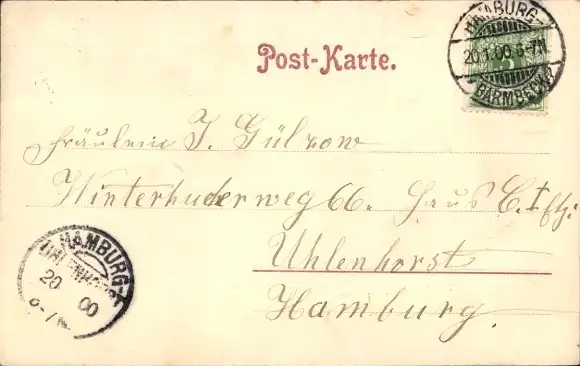 Post-Karte.
HAMBURG-
20.1.00.6-7N
BARMBECK
5
Fräulein J. Gülzow
Winterhuderweg 66. Haus C. I Etg:
Uhlenhorst
Hamburg.
HAMBURG-
UHLENHORST
20
00